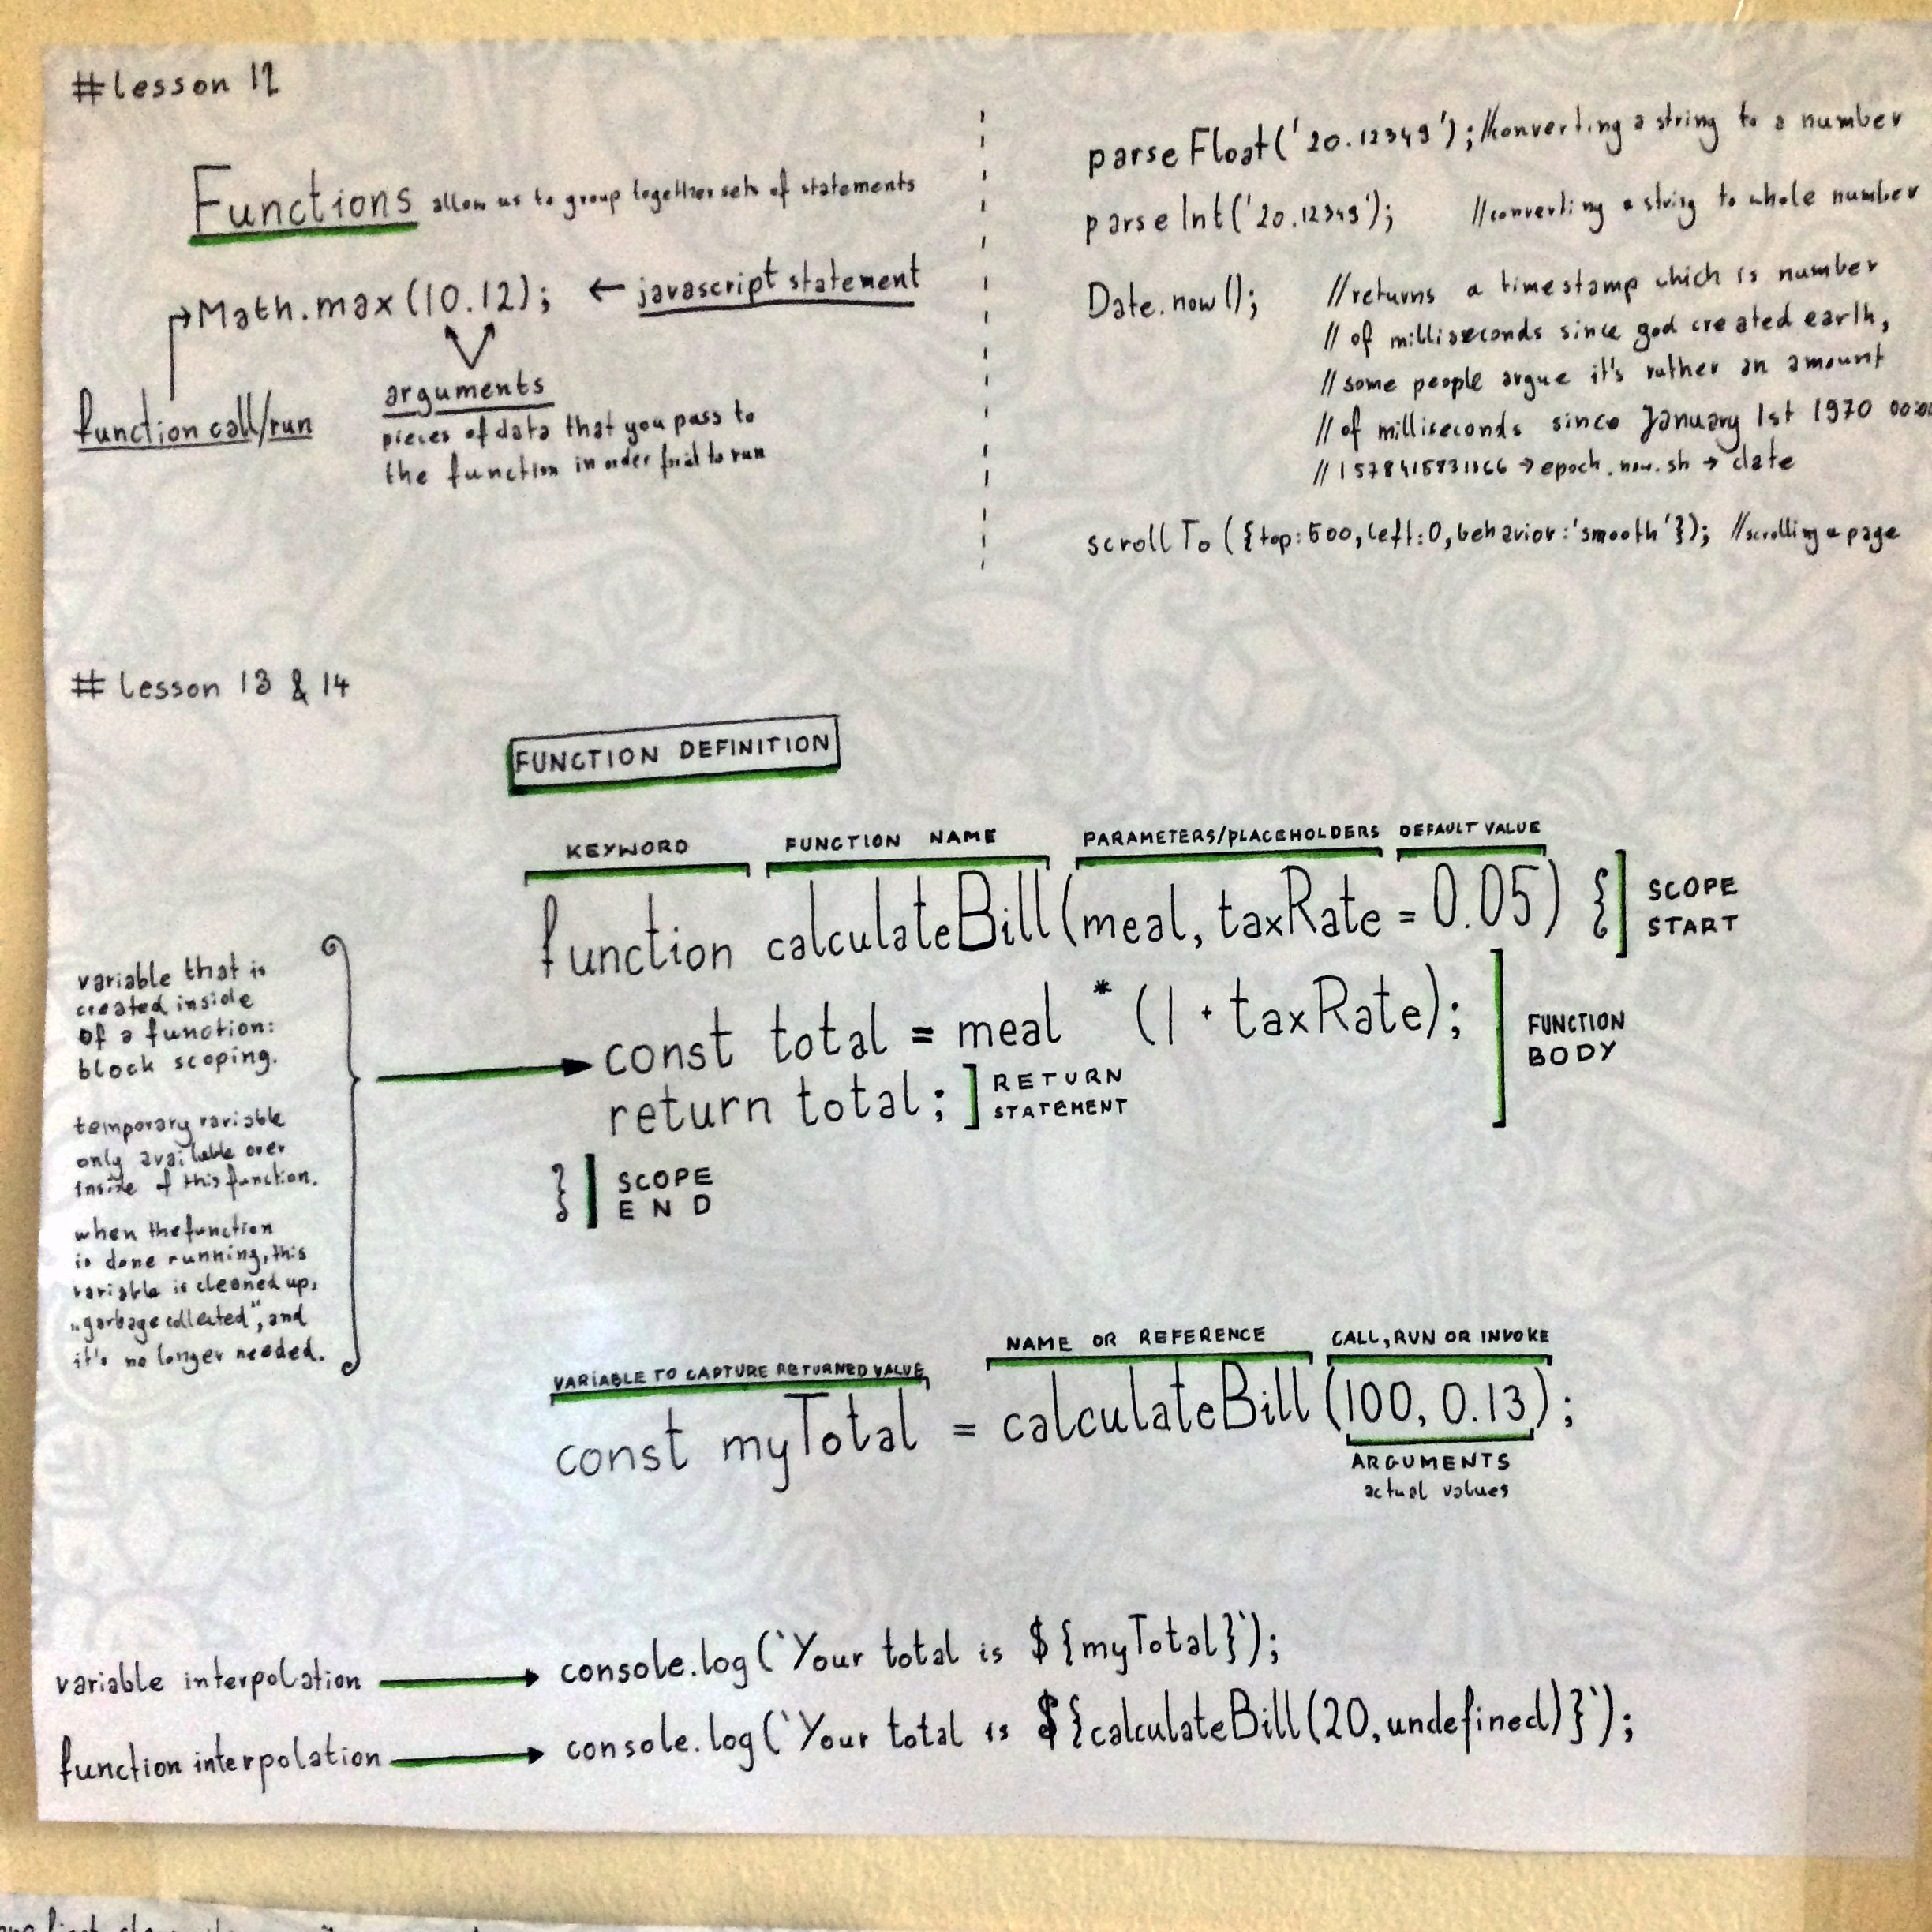 #lesson 12
Functions allow us to group together sets of statements
Math.max(10.12); ← javascript statement
function call/run
arguments
pieces of data that you pass to
the function in order for it to run
parseFloat('20.12349'); //converting a string to a number
parseInt('20.12349'); //converting a string to whole number
Date.now(); //returns a timestamp which is number
// of milliseconds since god created earth,
// some people argue it's rather an amount
// of milliseconds since January 1st 1970
// → epoch.now.sh → date
scrollTo({top:500,left:0,behavior:'smooth'}); //scrolling a page
# lesson 13 & 14
FUNCTION DEFINITION
KEYWORD FUNCTION NAME PARAMETERS/PLACEHOLDERS DEFAULT VALUE
function calculateBill(meal, taxRate = 0.05) {
SCOPE
START
const total = meal * (1 + taxRate);
return total;
RETURN
STATEMENT
FUNCTION
BODY
}
SCOPE
END
variable that is
created inside
of a function:
block scoping.
temporary variable
only available over
inside of this function.
when the function
is done running, this
variable is cleaned up,
„garbage collected", and
it's no longer needed.
VARIABLE TO CAPTURE RETURNED VALUE NAME OR REFERENCE CALL, RUN OR INVOKE
const myTotal = calculateBill(100, 0.13);
ARGUMENTS
actual values
variable interpolation → console.log(`Your total is ${myTotal}`);
function interpolation → console.log(`Your total is ${calculateBill(20, undefined)}`);